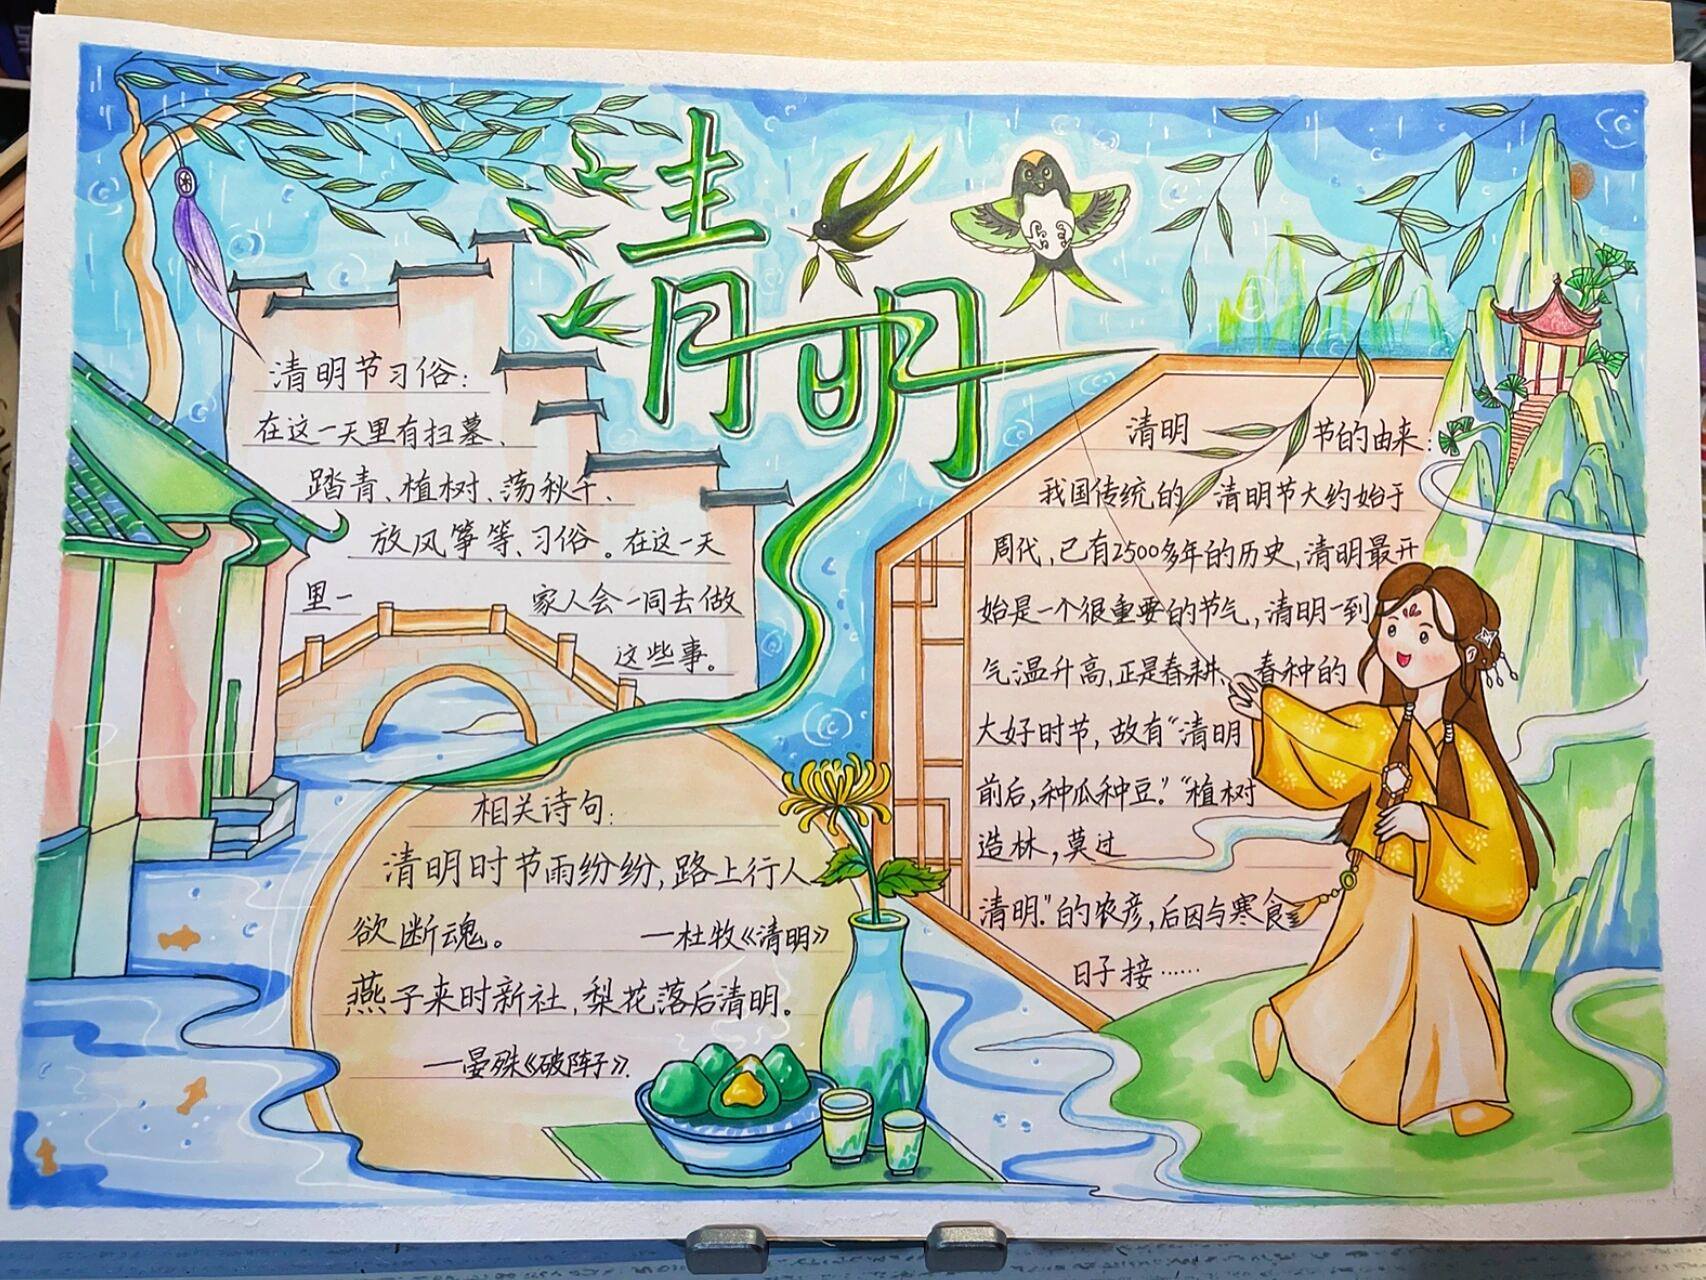 清明
清明节习俗:
在这一天里有扫墓、
踏青、植树、荡秋千、
放风筝等、习俗。在这一天
里一 家人会一同去做
这些事。
相关诗句:
清明时节雨纷纷,路上行人
欲断魂。 —杜牧《清明》
燕子来时新社,梨花落后清明。
—晏殊《破阵子》.
清明 节的由来:
我国传统的 清明节大约始于
周代,已有2500多年的历史,清明最开
始是一个很重要的节气,清明一到
气温升高,正是春耕、春种的
大好时节,故有“清明
前后,种瓜种豆.”“植树
造林,莫过
清明.”的农彦,后因与寒食
日子接……